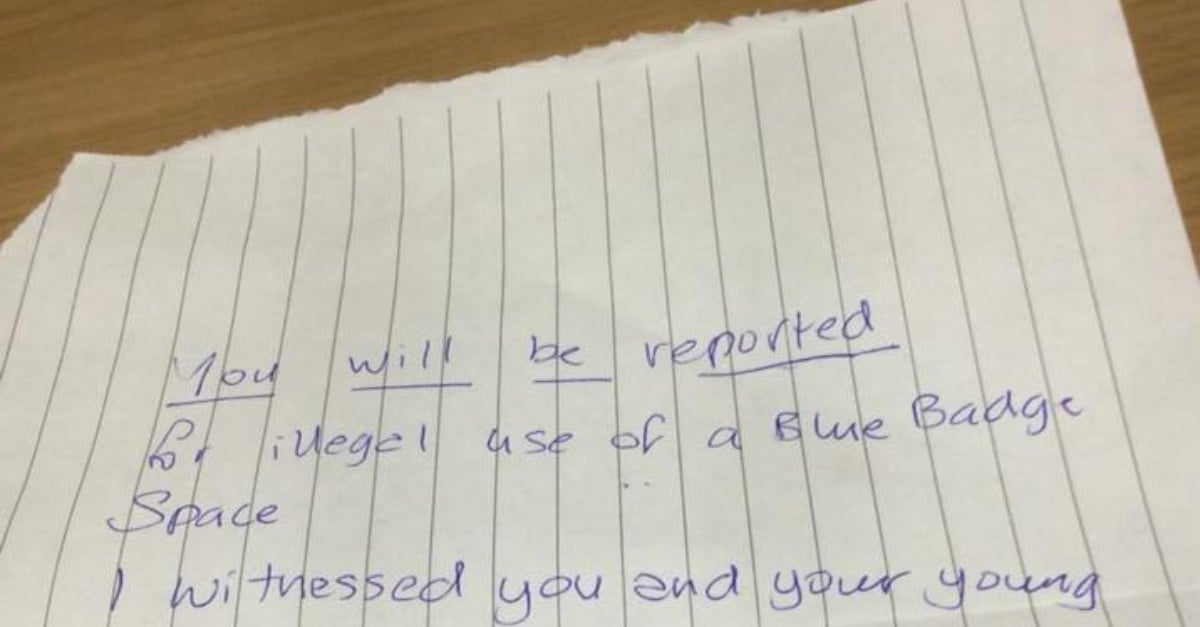 You will be reported
for illegel use of a Blue Badge
Space
I witnessed you and your young